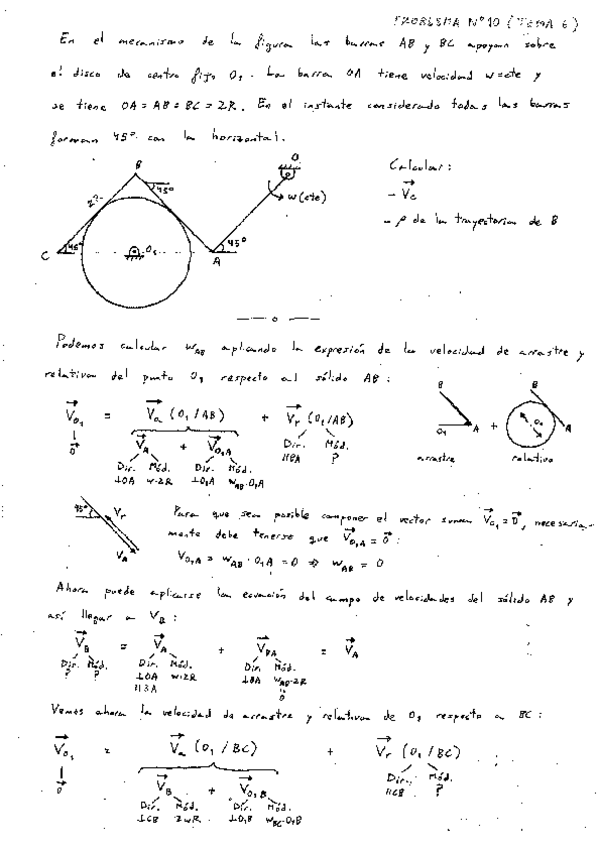 PROBLEMA Nº 10 (TEMA 6)
En el mecanismo de la figura las barras AB y BC apoyan sobre
el disco de centro fijo O₁. La barra OA tiene velocidad w=cte y
se tiene OA = AB = BC = 2R. En el instante considerado todas las barras
forman 45º con la horizontal.
Calcular:
- V⃗c
- ρ de la trayectoria de B
B
45º
2R
O
w(cte)
C
45º
O₁
A
45º
Podemos calcular w_AB aplicando la expresión de la velocidad de arrastre y
relativa del punto O₁ respecto al sólido AB:
V⃗_O₁ = V⃗a (O₁/AB) + V⃗r (O₁/AB)
0⃗
V⃗_A + V⃗_O₁A
Dir. Mód. Dir. Mód.
⊥OA w·2R ⊥O₁A w_AB·O₁A
Dir. Mód.
∥BA ?
B
O₁ A
arrastre
+
B
O₁
A
relativo
45º
Vr
V_A
Para que sea posible componer el vector suma V⃗_O₁ = 0⃗, necesaria-
mente debe tenerse que V⃗_O₁A = 0⃗:
V_O₁A = w_AB · O₁A = 0 ⇒ w_AB = 0
Ahora puede aplicarse la ecuación del campo de velocidades del sólido AB y
así llegar a V_B:
V⃗_B = V⃗_A + V⃗_BA = V⃗_A
Dir. Mód. Dir. Mód. Dir. Mód.
? ? ⊥OA w·2R ⊥BA w_AB·2R
∥BA 0
Vemos ahora la velocidad de arrastre y relativa de O₁ respecto a BC:
V⃗_O₁ = V⃗a (O₁/BC) + V⃗r (O₁/BC)
0⃗
V⃗_B + V⃗_O₁B
Dir. Mód. Dir. Mód.
⊥CB 2wR ⊥O₁B w_BC·O₁B
Dir. Mód.
∥CB ?